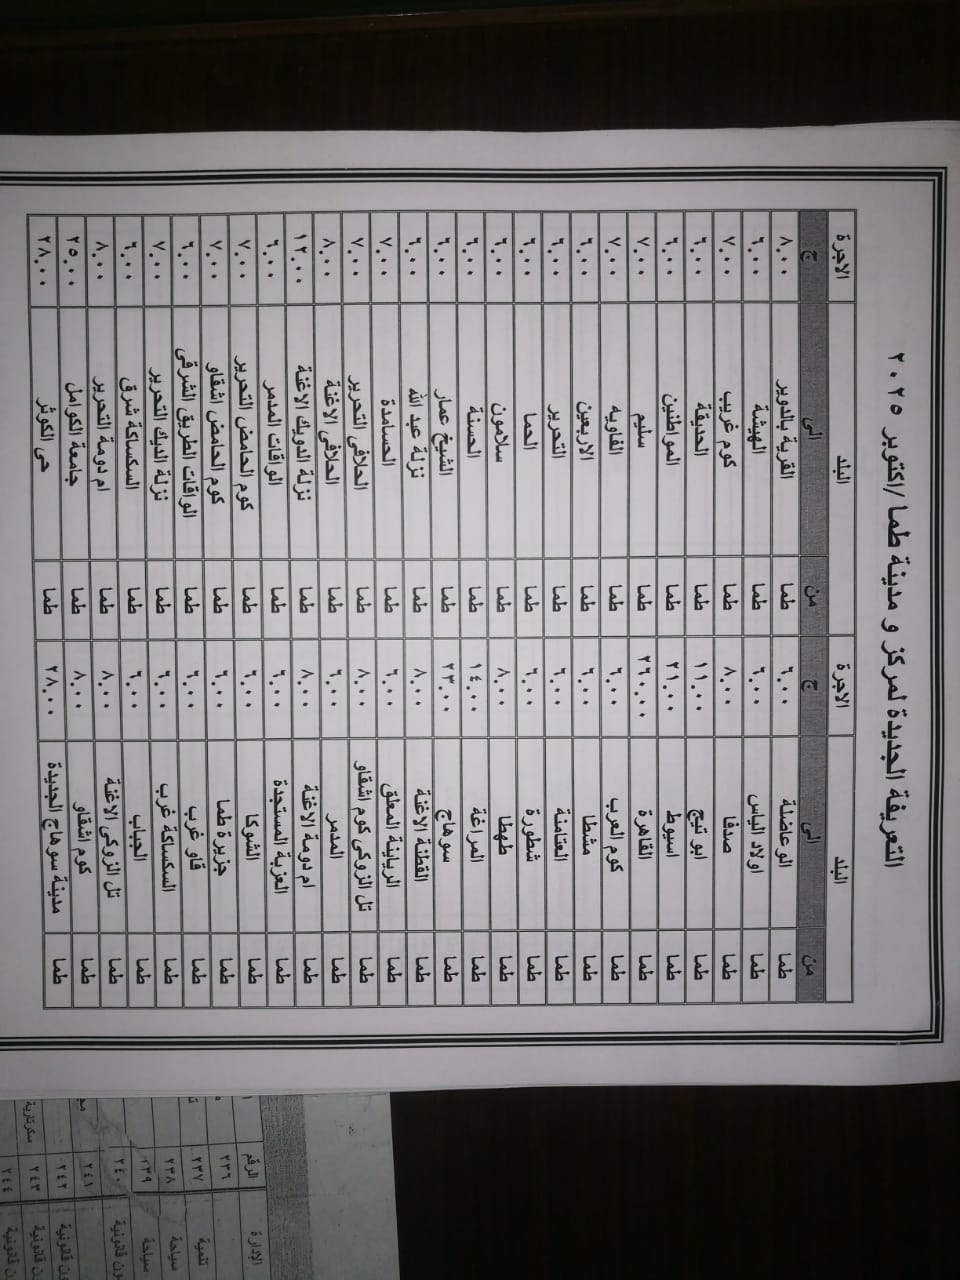 التعريفة الجديدة لمركز و مدينة طما /اكتوبر ٢٠٢٥
البلد الاجرة البلد الاجرة
من الى ج من الى ج
طما الوعاضلة ٦.٠٠ طما القرية بالدوير ٨.٠٠
طما اولاد الياس ٦.٠٠ طما الهيشة ٦.٠٠
طما صدفا ٨.٠٠ طما كوم غريب ٧.٠٠
طما ابو تيج ١١.٠٠ طما الحديقة ٦.٠٠
طما اسيوط ٢١.٠٠ طما المواطنين ٦.٠٠
طما القاهرة ٢٦٠.٠٠ طما سليم ٧.٠٠
طما كوم العرب ٦.٠٠ طما الفاويه ٧.٠٠
طما مشطا ٦.٠٠ طما الاربعين ٦.٠٠
طما العتامنة ٦.٠٠ طما التحرير ٦.٠٠
طما شطورة ٦.٠٠ طما الحما ٦.٠٠
طما طهطا ٨.٠٠ طما سلامون ٦.٠٠
طما المراغة ١٤.٠٠ طما الحسنة ٦.٠٠
طما سوهاج ٢٣.٠٠ طما الشيخ عمار ٦.٠٠
طما القطنة الاغنة ٨.٠٠ طما نزلة عبد الله ٦.٠٠
طما الرياينة المعلق ٦.٠٠ طما الحسامدة ٧.٠٠
طما تل الزوكى كوم اشقاو ٨.٠٠ طما الحلافى التحرير ٧.٠٠
طما المدمر ٦.٠٠ طما الحلافى الاغنة ٨.٠٠
طما ام دومة الاغنة ٨.٠٠ طما نزلة الدويك الاغنة ١٢.٠٠
طما العزبة المستجدة ٦.٠٠ طما الواقات المدمر ٦.٠٠
طما الشوكا ٦.٠٠ طما كوم الحامض التحرير ٧.٠٠
طما جزيرة طما ٦.٠٠ طما كوم الحامض اشقاو ٧.٠٠
طما قاو غرب ٦.٠٠ طما الواقات الطريق الشرقى ٦.٠٠
طما السكساكة غرب ٦.٠٠ طما نزلة الديك التحرير ٧.٠٠
طما الحباب ٦.٠٠ طما السكساكة شرق ٦.٠٠
طما تل الزوكى الاغنة ٨.٠٠ طما ام دومة التحرير ٨.٠٠
طما كوم اشقاو ٨.٠٠ طما جامعة الكوامل ٢٥.٠٠
طما مدينة سوهاج الجديدة ٢٨.٠٠ طما حى الكوثر ٢٨.٠٠
الإدارة الرقم
٢٣٦
تنمية ٢٣٧
سياحة ٢٣٨
سياحة ٢٣٩
قانونية ٢٤٠
٢٤١
قانونية ٢٤٢
قانونية ٢٤٣ سكرتارية
قانونية ٢٤٤